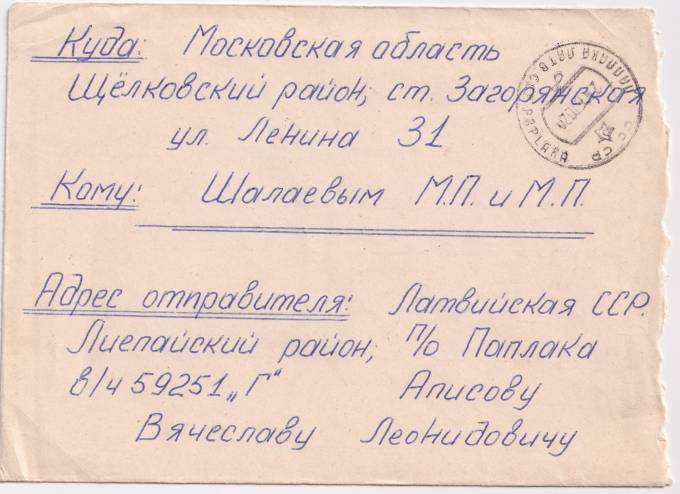 Куда: Московская область
Щёлковский район, ст. Загорянская
ул. Ленина 31
Кому: Шалаевым М.П. и М.П.
Адрес отправителя: Латвийская ССР.
Лиепайский район; п/о Паплака
в/ч 59251 „Г"
Аписову
Вячеславу Леонидовичу
ПАПЛАКА ЛАТВ.
PAPLAKA